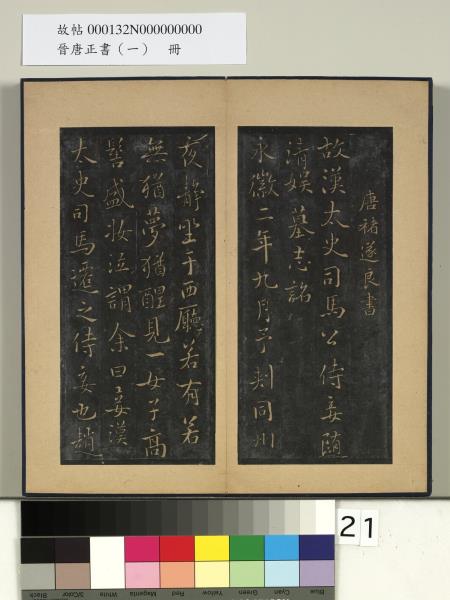 故帖 000132N000000000
晉唐正書（一） 冊
唐褚遂良書
故漢太史司馬公侍妾隨
清娛墓志銘
永徽二年九月予刺同州
夜靜坐于西廳若有若
無猶夢猶醒見一女子高
髻盛妝泣謂余曰妾漢
太史司馬遷之侍妾也趙
21
Black
3/Color
White
Magenta
Red
Yellow
Green
Cyan
Blue